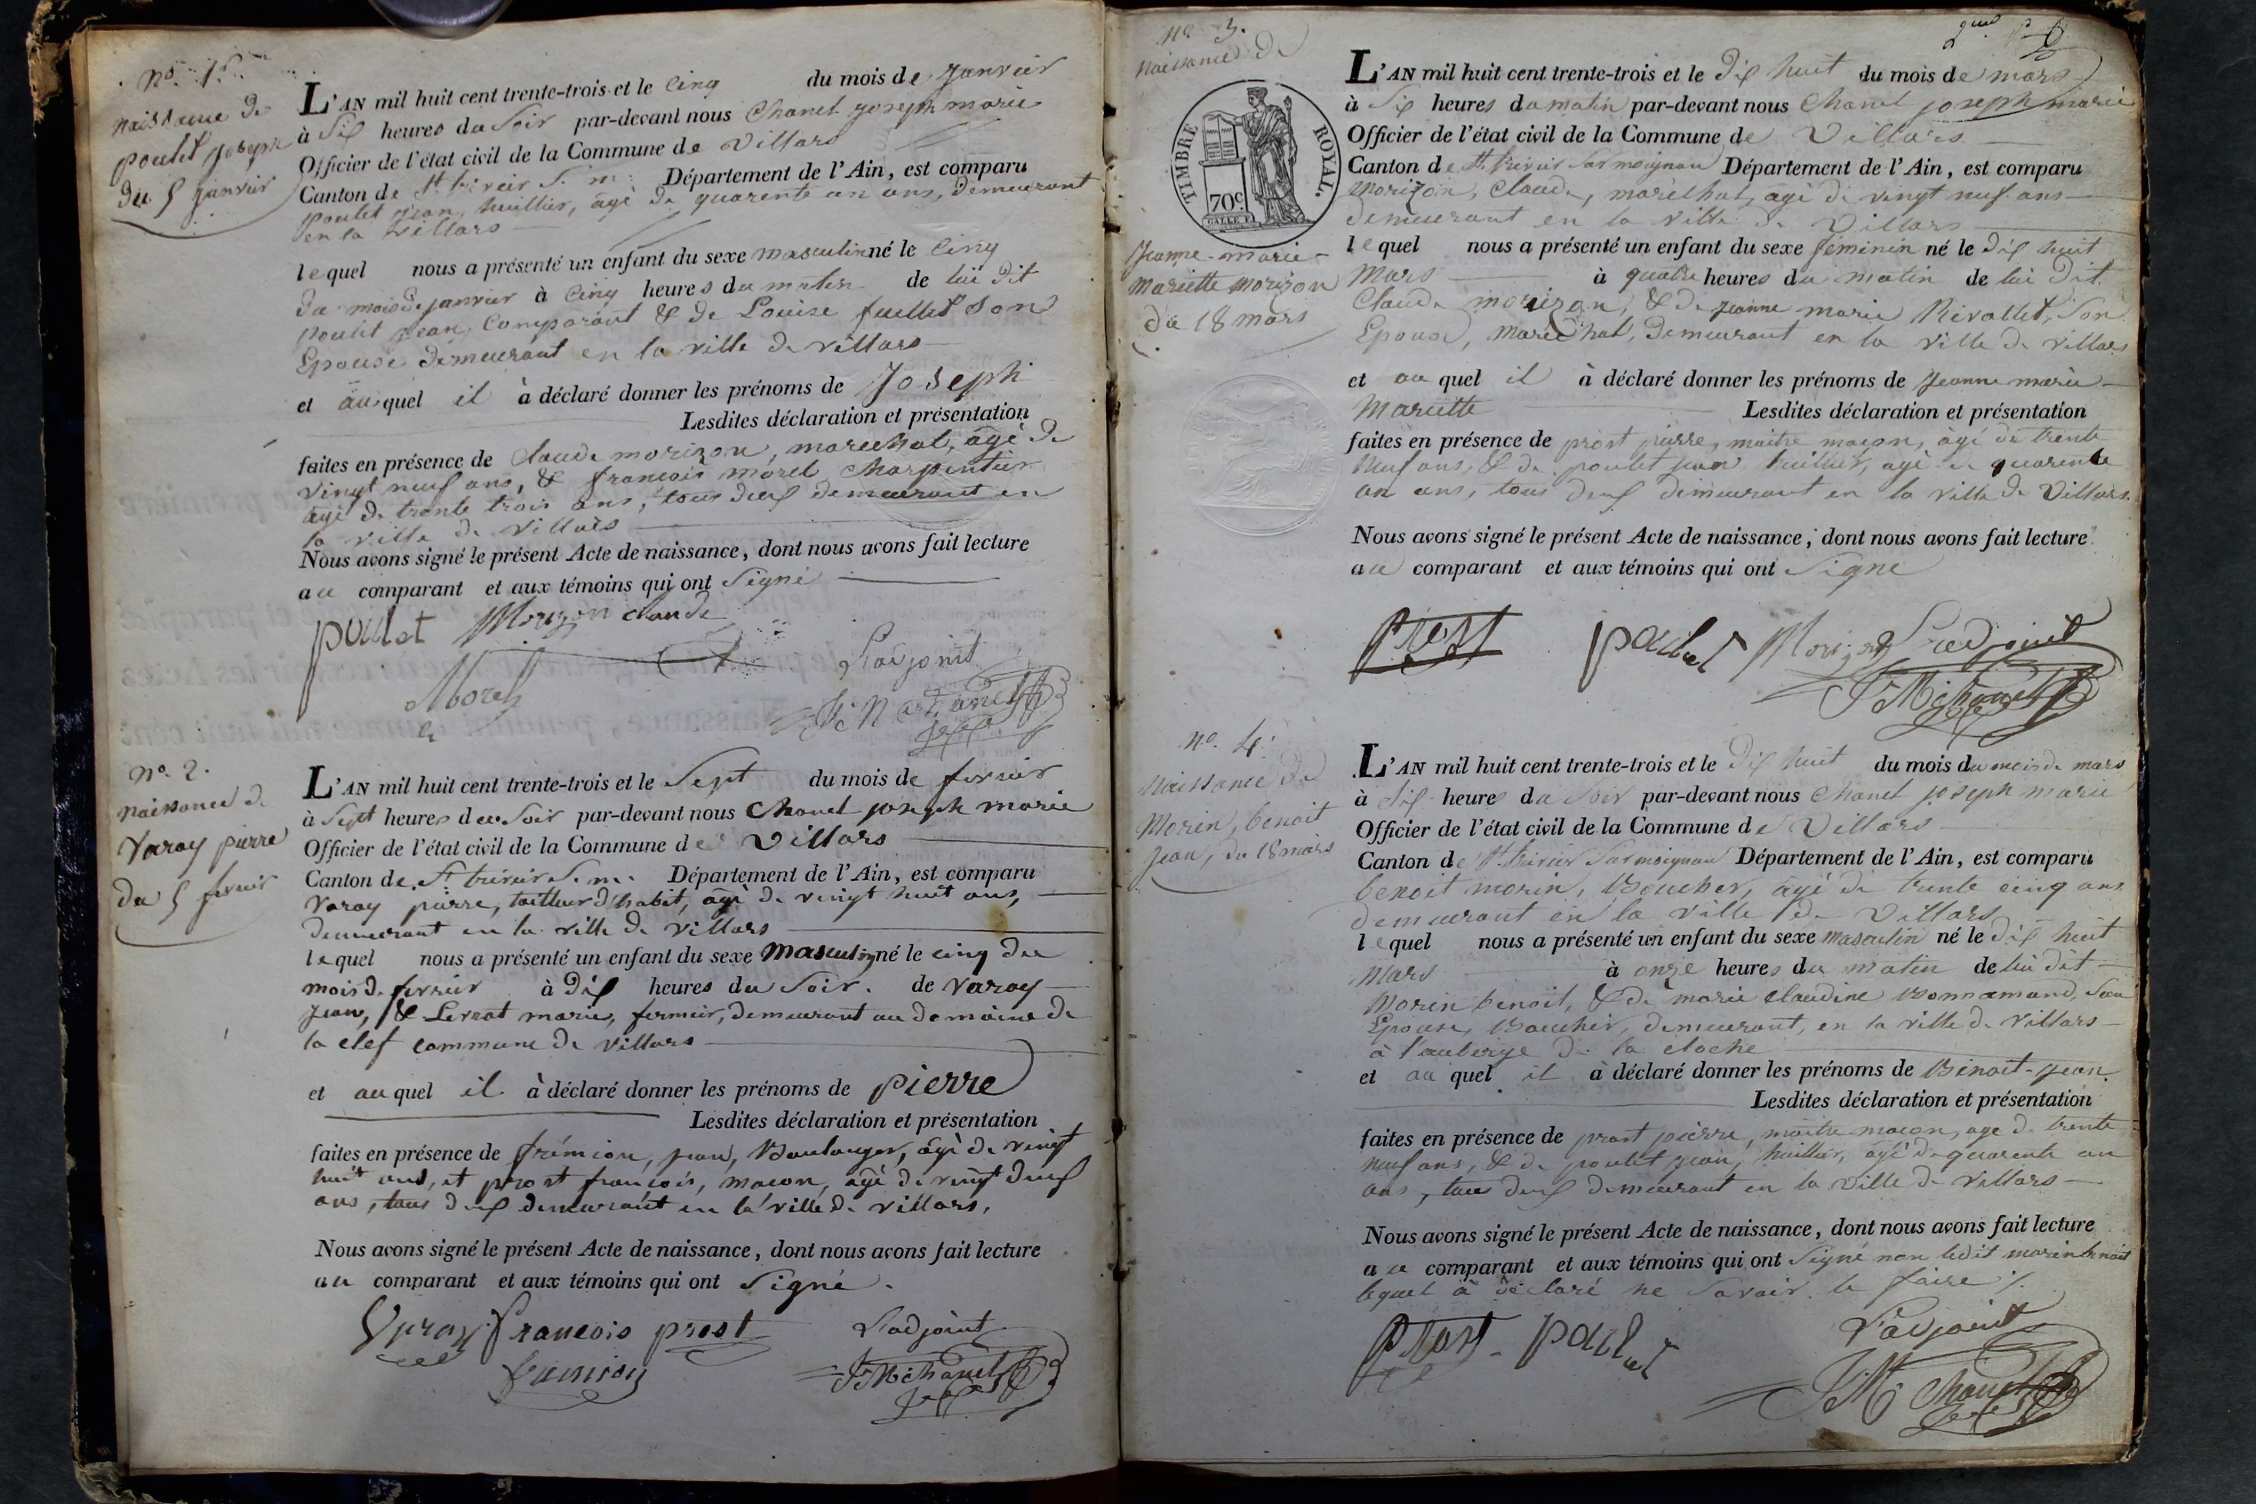 N.o 1.er
naissance de
poulet joseph
du 5 janvier
L'AN mil huit cent trente-trois et le Cinq du mois de janvier
à Six heures du Soir par-devant nous Chanel joseph marie
Officier de l'état civil de la Commune de Villars
Canton de St. trivier S. m. Département de l'Ain, est comparu
poulet jean, huillier, agé de quarente un ans, demeurant
en la Villars
lequel nous a présenté un enfant du sexe masculin né le Cinq
du mois de janvier à Cinq heures du matin de lui dit
poulet jean, Comparant & de Louise fuillet Son
Epouse demeurant en la ville de villars
et au quel il à déclaré donner les prénoms de Joseph
Lesdites déclaration et présentation
faites en présence de Claude morizon, marechal, âgé de
vingt neuf ans, & francois morel Charpentier
âgé de trente trois ans, tous deux demeurant en
la ville de villars
Nous avons signé le présent Acte de naissance, dont nous avons fait lecture
au comparant et aux témoins qui ont Signé
poulet Morizon claude
Morel
L'adjoint
J. M. Chanel
N.o 2.
naissance de
Varay pierre
du 5 fevrier
L'AN mil huit cent trente-trois et le Sept du mois de fevrier
à Sept heures du Soir par-devant nous Chanel joseph marie
Officier de l'état civil de la Commune de Villars
Canton de St trivier S. m. Département de l'Ain, est comparu
Varay pierre, tailleur d'habit, âgé de vingt huit ans,
demeurant en la ville de villars
lequel nous a présenté un enfant du sexe masculin né le cinq du
mois de fevrier à dix heures du Soir. de Varay
jean, & Lernat marie, fermier, demeurant au domaine de
la clef commune de villars
et au quel il à déclaré donner les prénoms de pierre
Lesdites déclaration et présentation
faites en présence de frémion, jean, Boulanger, âgé de vingt
huit ans, et prost francois, macon, âgé de vingt deux
ans, tous deux demeurant en la ville de villars.
Nous avons signé le présent Acte de naissance, dont nous avons fait lecture
au comparant et aux témoins qui ont Signé.
Varay francois prost L'adjoint
fremion J M Chanel
2me
N.o 3.
naissance de
TIMBRE ROYAL.
70c.
Jeanne-marie-
Mariette morizon
du 18 mars
L'AN mil huit cent trente-trois et le dix huit du mois de mars
à Six heures du matin par-devant nous Chanel joseph marie
Officier de l'état civil de la Commune de Villars
Canton de St. trivier Sur moignan Département de l'Ain, est comparu
Morizon, Claude, marechal, agé de vingt neuf ans
demeurant en la ville de Villars
lequel nous a présenté un enfant du sexe féminin né le dix huit
Mars à quatre heures du matin de lui dit
Claude morizon, & de jeanne marie Rivollet, Son
Epouse, marechal, demeurant en la ville de villars
et au quel il à déclaré donner les prénoms de jeanne marie
Mariette Lesdites déclaration et présentation
faites en présence de prost pierre, maitre macon, âgé de trente
Neuf ans, & de poulet jean huillier, agé de quarente
un ans, tous deux demeurant en la ville de Villars.
Nous avons signé le présent Acte de naissance, dont nous avons fait lecture
au comparant et aux témoins qui ont Signé
Prost poulet Morizon L'adjoint
J M Chanel
N.o 4.
Naissance de
Morin, benoit
jean, du 18 mars
L'AN mil huit cent trente-trois et le dix huit du mois du mois de mars
à Six heures du Soir par-devant nous Chanel joseph marie
Officier de l'état civil de la Commune de Villars
Canton de St. trivier Sur moignan Département de l'Ain, est comparu
benoit morin, Boucher, âgé de trente cinq ans
demeurant en la ville de Villars
lequel nous a présenté un enfant du sexe masculin né le dix huit
Mars à onze heures du matin de lui dit
Morin benoit, & de marie Claudine Bonnamand, Son
Epouse, Boucher, demeurant, en la ville de Villars
à l'auberge de la cloche
et au quel il à déclaré donner les prénoms de Benoit-jean.
Lesdites déclaration et présentation
faites en présence de prost pierre, maitre macon, age de trente
neuf ans, & de poulet jean, huillier, âgé de quarente un
ans, tous deux demeurant en la ville de Villars
Nous avons signé le présent Acte de naissance, dont nous avons fait lecture
au comparant et aux témoins qui ont Signé non ledit morin benoit
lequel à déclaré ne Savoir le faire
Prost poulet L'adjoint
J M Chanel